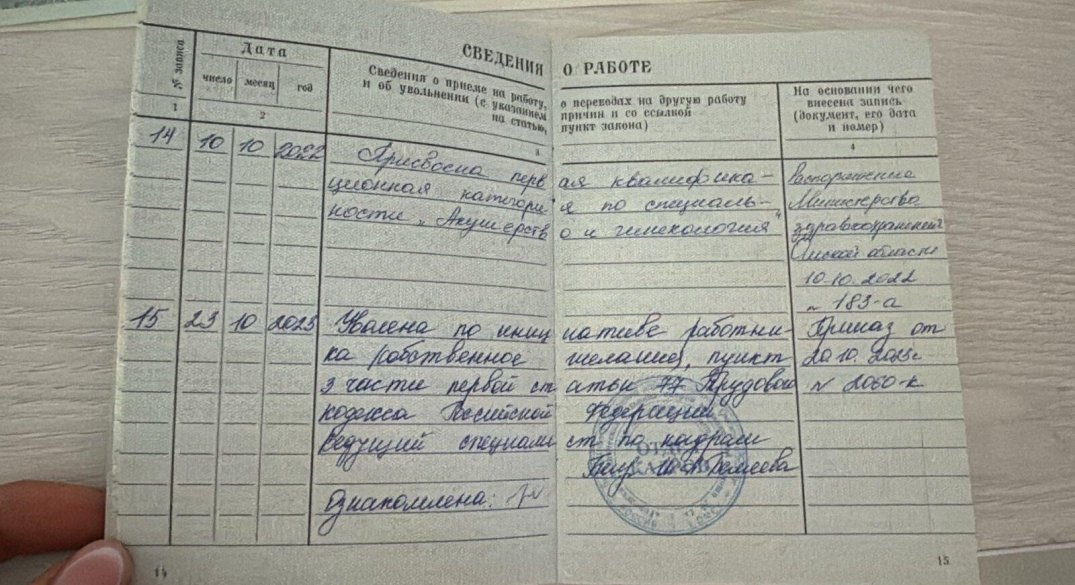 СВЕДЕНИЯ О РАБОТЕ
№ записи
Дата
число месяц год
Сведения о приеме на работу, о переводах на другую работу
и об увольнении (с указанием причин и со ссылкой
на статью, пункт закона)
На основании чего
внесена запись
(документ, его дата
и номер)
1 2 3 4
14 10 10 2022 Присвоена первая квалифика- Распоряжение
ционная категория по специаль- Министерства
ности „Акушерство и гинекология" здравоохранения
Омской области
10.10.2022
183-а
15 23 10 2023 Уволена по инициативе работни- Приказ от
ка (собственное желание), пункт 20.10.2023г
3 части первой статьи 77 Трудового № 2060-к
кодекса Российской Федерации
Ведущий специалист по кадрам
ОТДЕЛ
КАДРОВ
Ознакомлена:
14 15